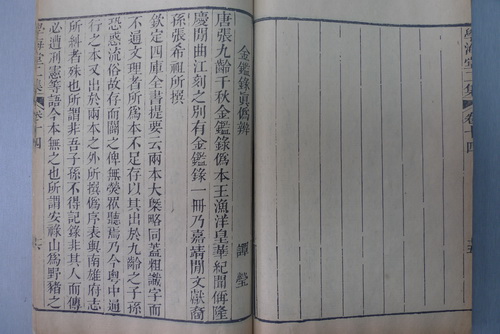 學海堂二集
卷十四
金鑑錄眞僞辨
譚瑩
唐張九齡千秋金鑑錄僞本王漁洋皇華紀聞俾隆
慶間曲江刻之別有金鑑錄一冊乃嘉靖間文獻裔
孫張希祖所撰
欽定四庫全書提要云兩本大槩略同蓋粗識字而
不通文理者所爲本不足存以其出於九齡之子孫
恐惑流俗故存而闢之俾無熒眾聽焉乃今粵中通
行之本又出於兩本之外所撰僞序表與南雄府志
所糾者殊也所謂非吾子孫不得記錄非其人而傳
必遭刑憲等語今本無之也所謂安祿山爲野豬之
學海堂二集
卷十四